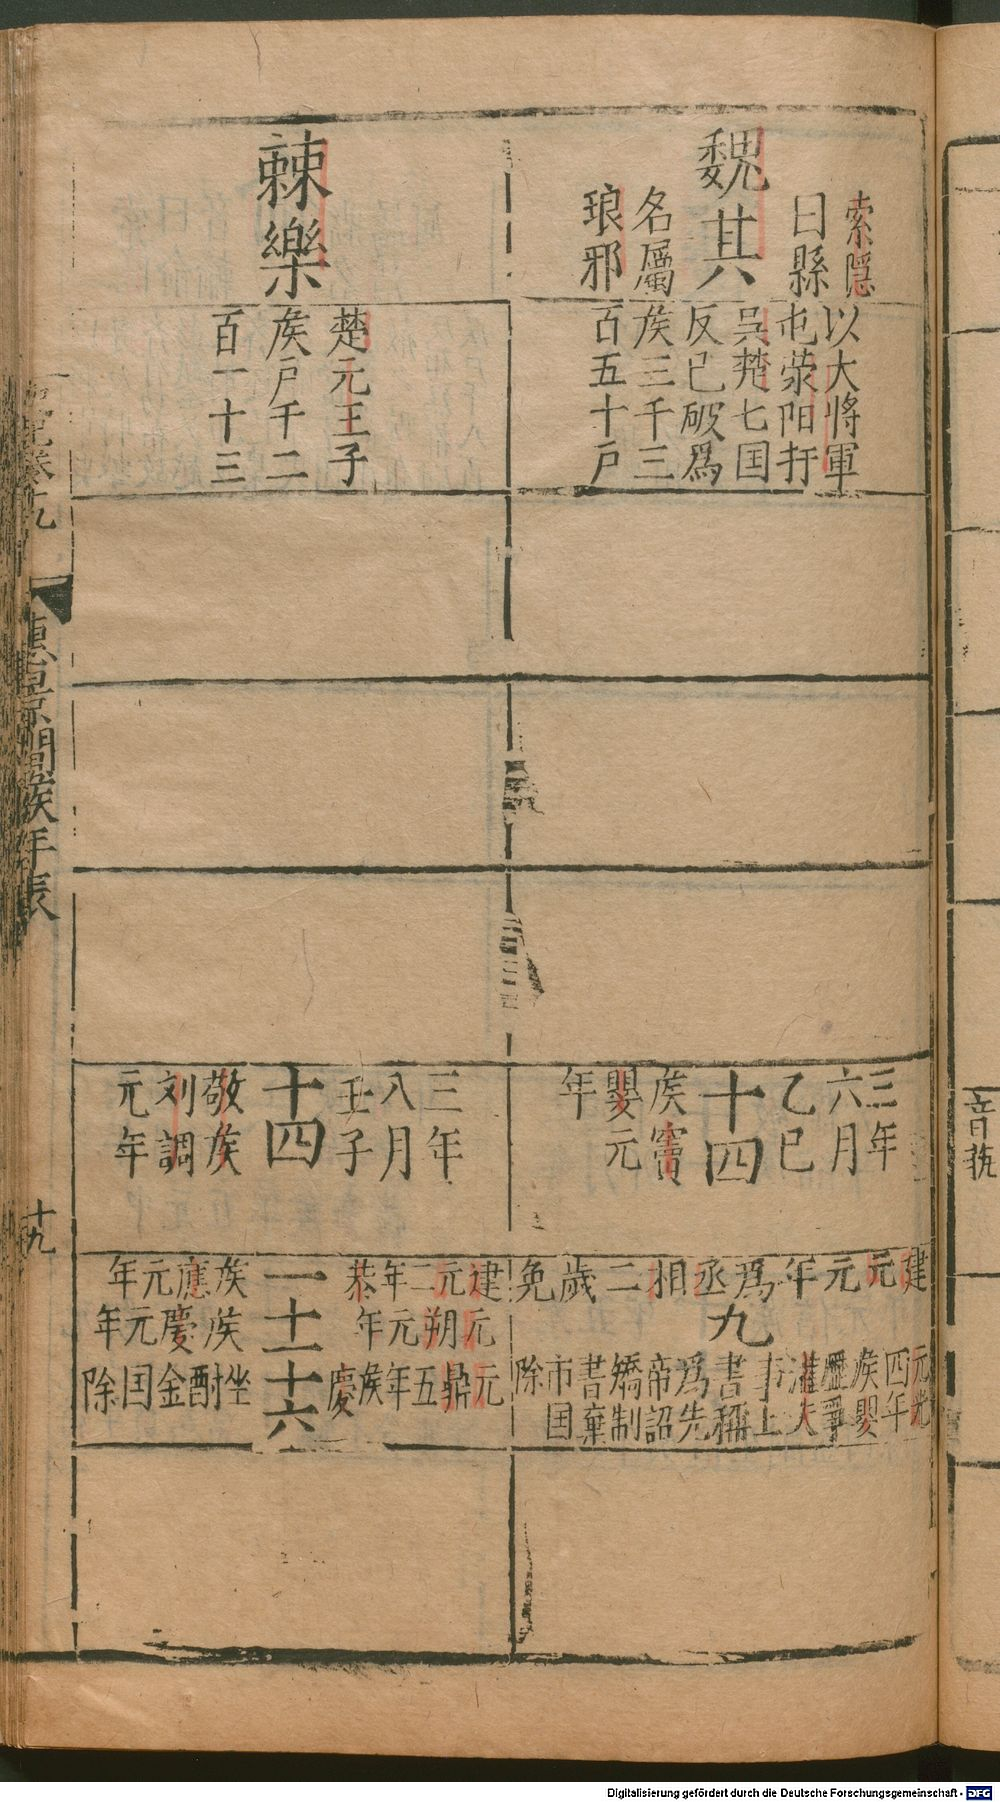 魏其
索隱
曰縣
名屬
琅邪
以大將軍
屯滎阳扞
吳楚七国
反已破爲
矦三千三
百五十戶
三年
六月
乙巳
十四
矦竇
嬰元
年
建元元年爲丞相二歲免
九
元光
四年
矦嬰
爭
灌夫
事上
書稱
爲先
帝詔
矯制
書棄
市国
除
棘樂
楚元王子
矦戶千二
百一十三
三年
八月
壬子
十四
敬矦
刘調
元年
建元二年恭
矦應元年
一
元朔元年
矦慶元年
十一
元鼎五年矦慶
坐酎金国除
十六
史記卷十九
惠景間矦年表
十九
音
Digitalisierung gefördert durch die Deutsche Forschungsgemeinschaft - DFG